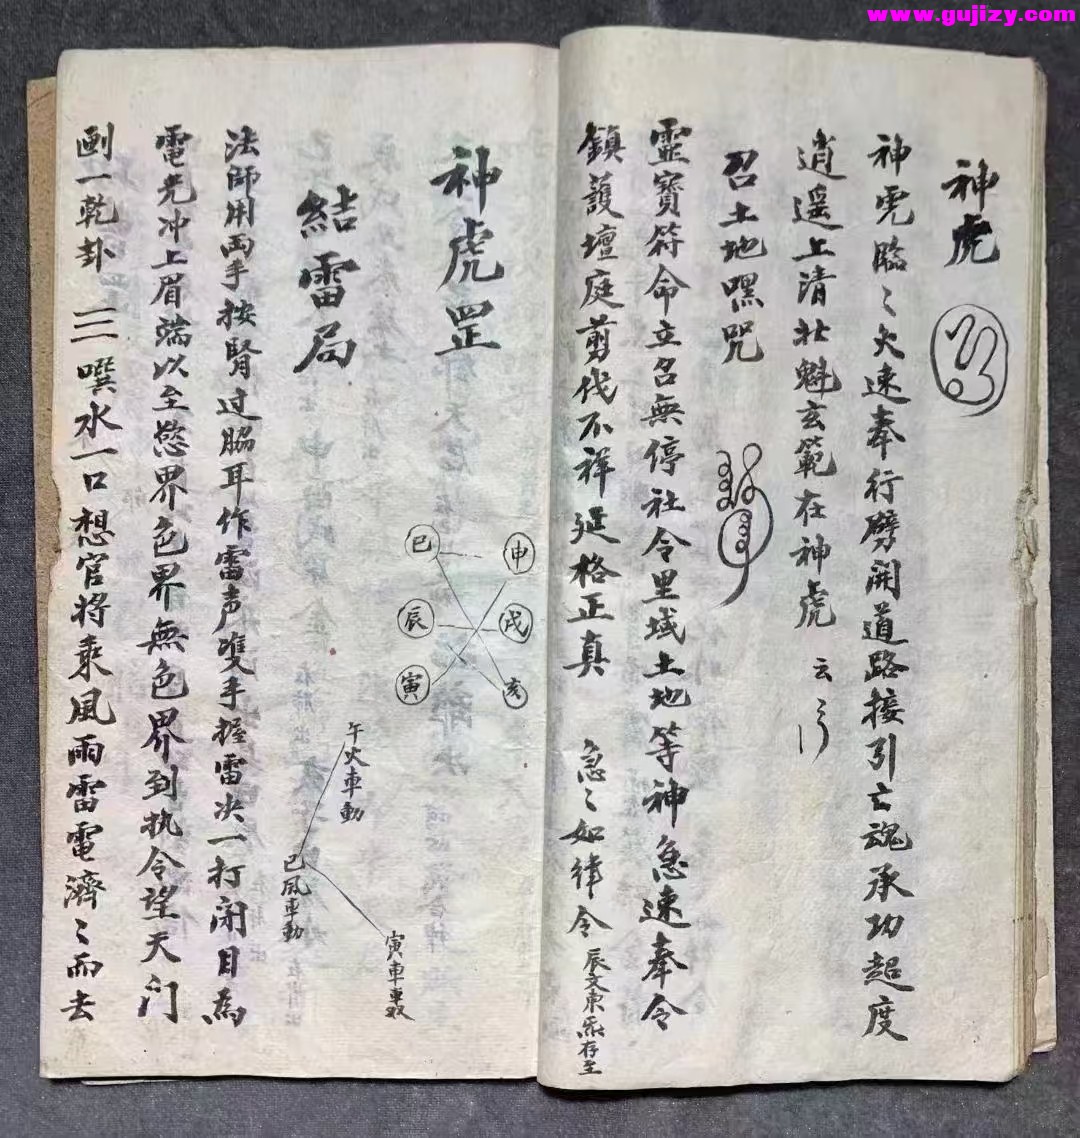 www.gujizy.com
神虎
神虎臨〻火速奉行劈開道路接引亡魂承功起度
逍遥上清北魁玄範在神虎 云〻
召土地嘿咒
靈寶符命立召無停社令里域土地等神急速奉令
鎮護壇庭剪伐不祥延格正真 急〻如律令 辰文東炁存至
神虎罡
巳 申
辰 戌
寅 亥
結雷局
午火車動
巳風車動
寅車車
法師用両手按腎过脇耳作雷声雙手握雷决一打闭目為
電光冲上眉端以至慾界色界無色界到执令望天门
画一乾卦 ☰ 噀水一口想官将乘風雨雷電濟〻而去